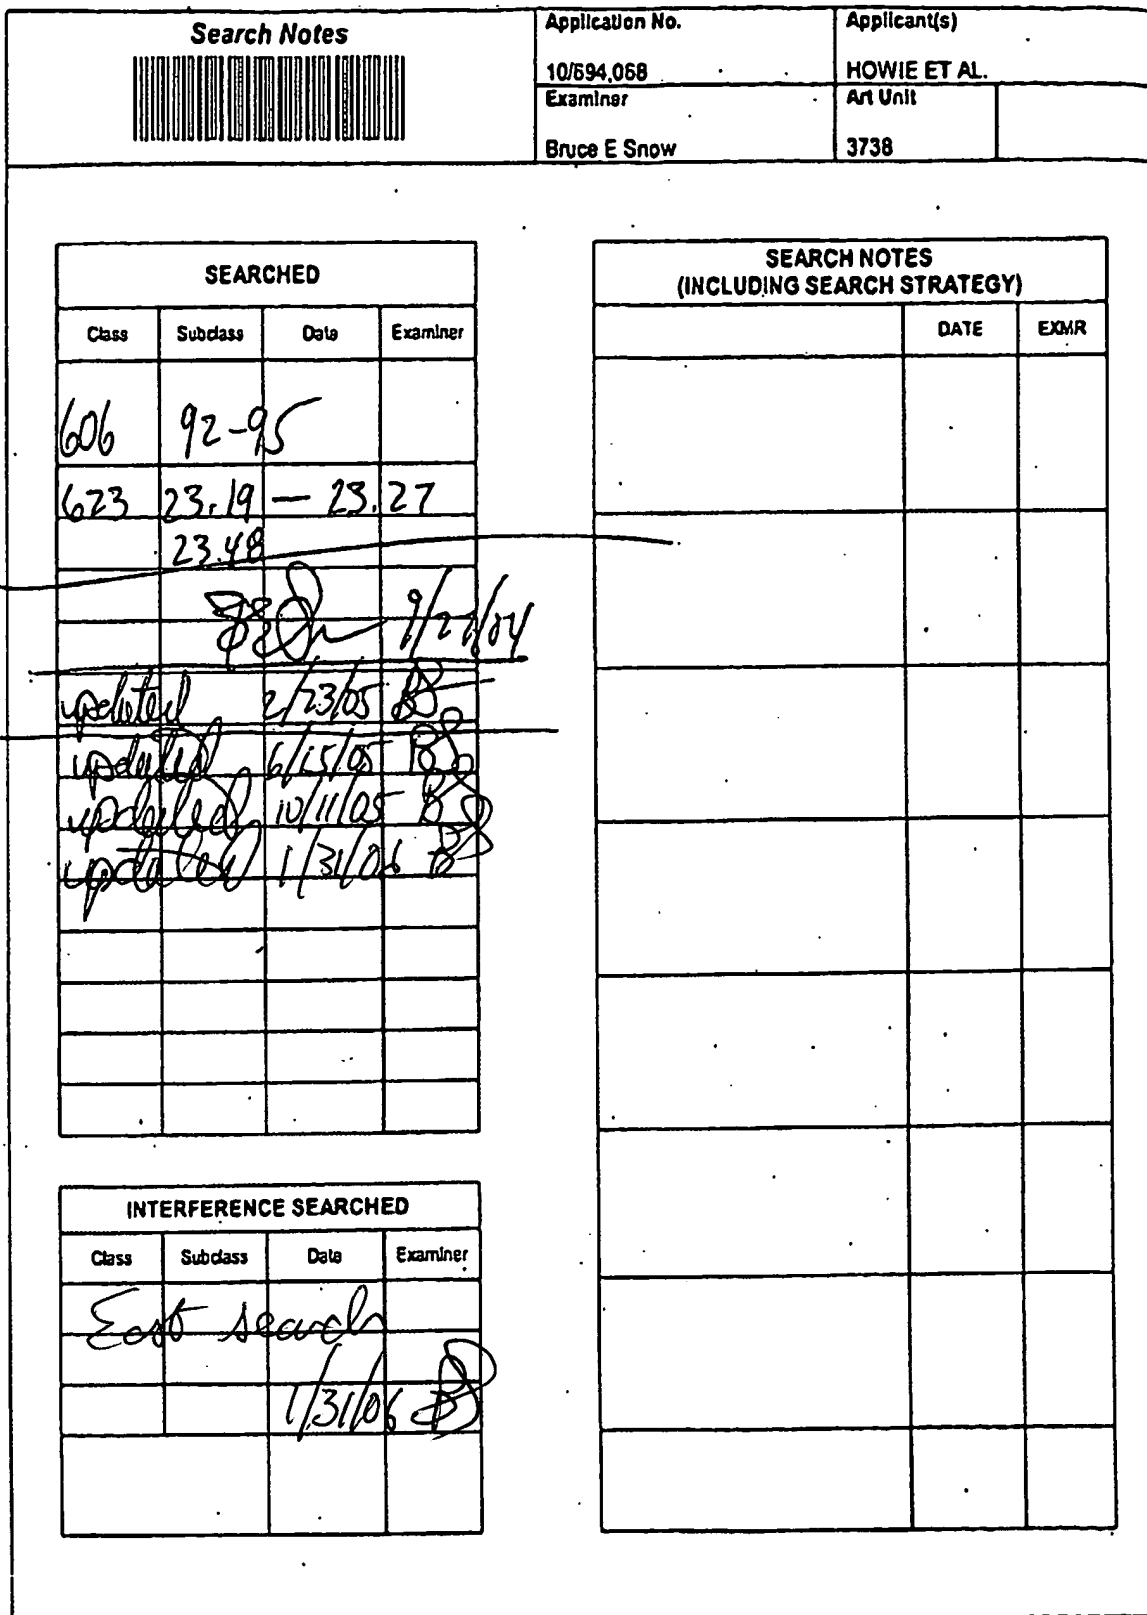 Search Notes
Application No.
Applicant(s)
10/694,068
HOWIE ET AL.
Examiner
Art Unit
Bruce E Snow
3738
SEARCHED
Class Subclass Date Examiner
606 92-95
623 23.19 — 23.27
23.48
updated 2/23/05 BS
updated 6/15/05 BS
updated 10/11/05 BS
updated 1/31/06 BS
INTERFERENCE SEARCHED
Class Subclass Date Examiner
East search
1/31/06 BS
SEARCH NOTES
(INCLUDING SEARCH STRATEGY)
DATE EXMR